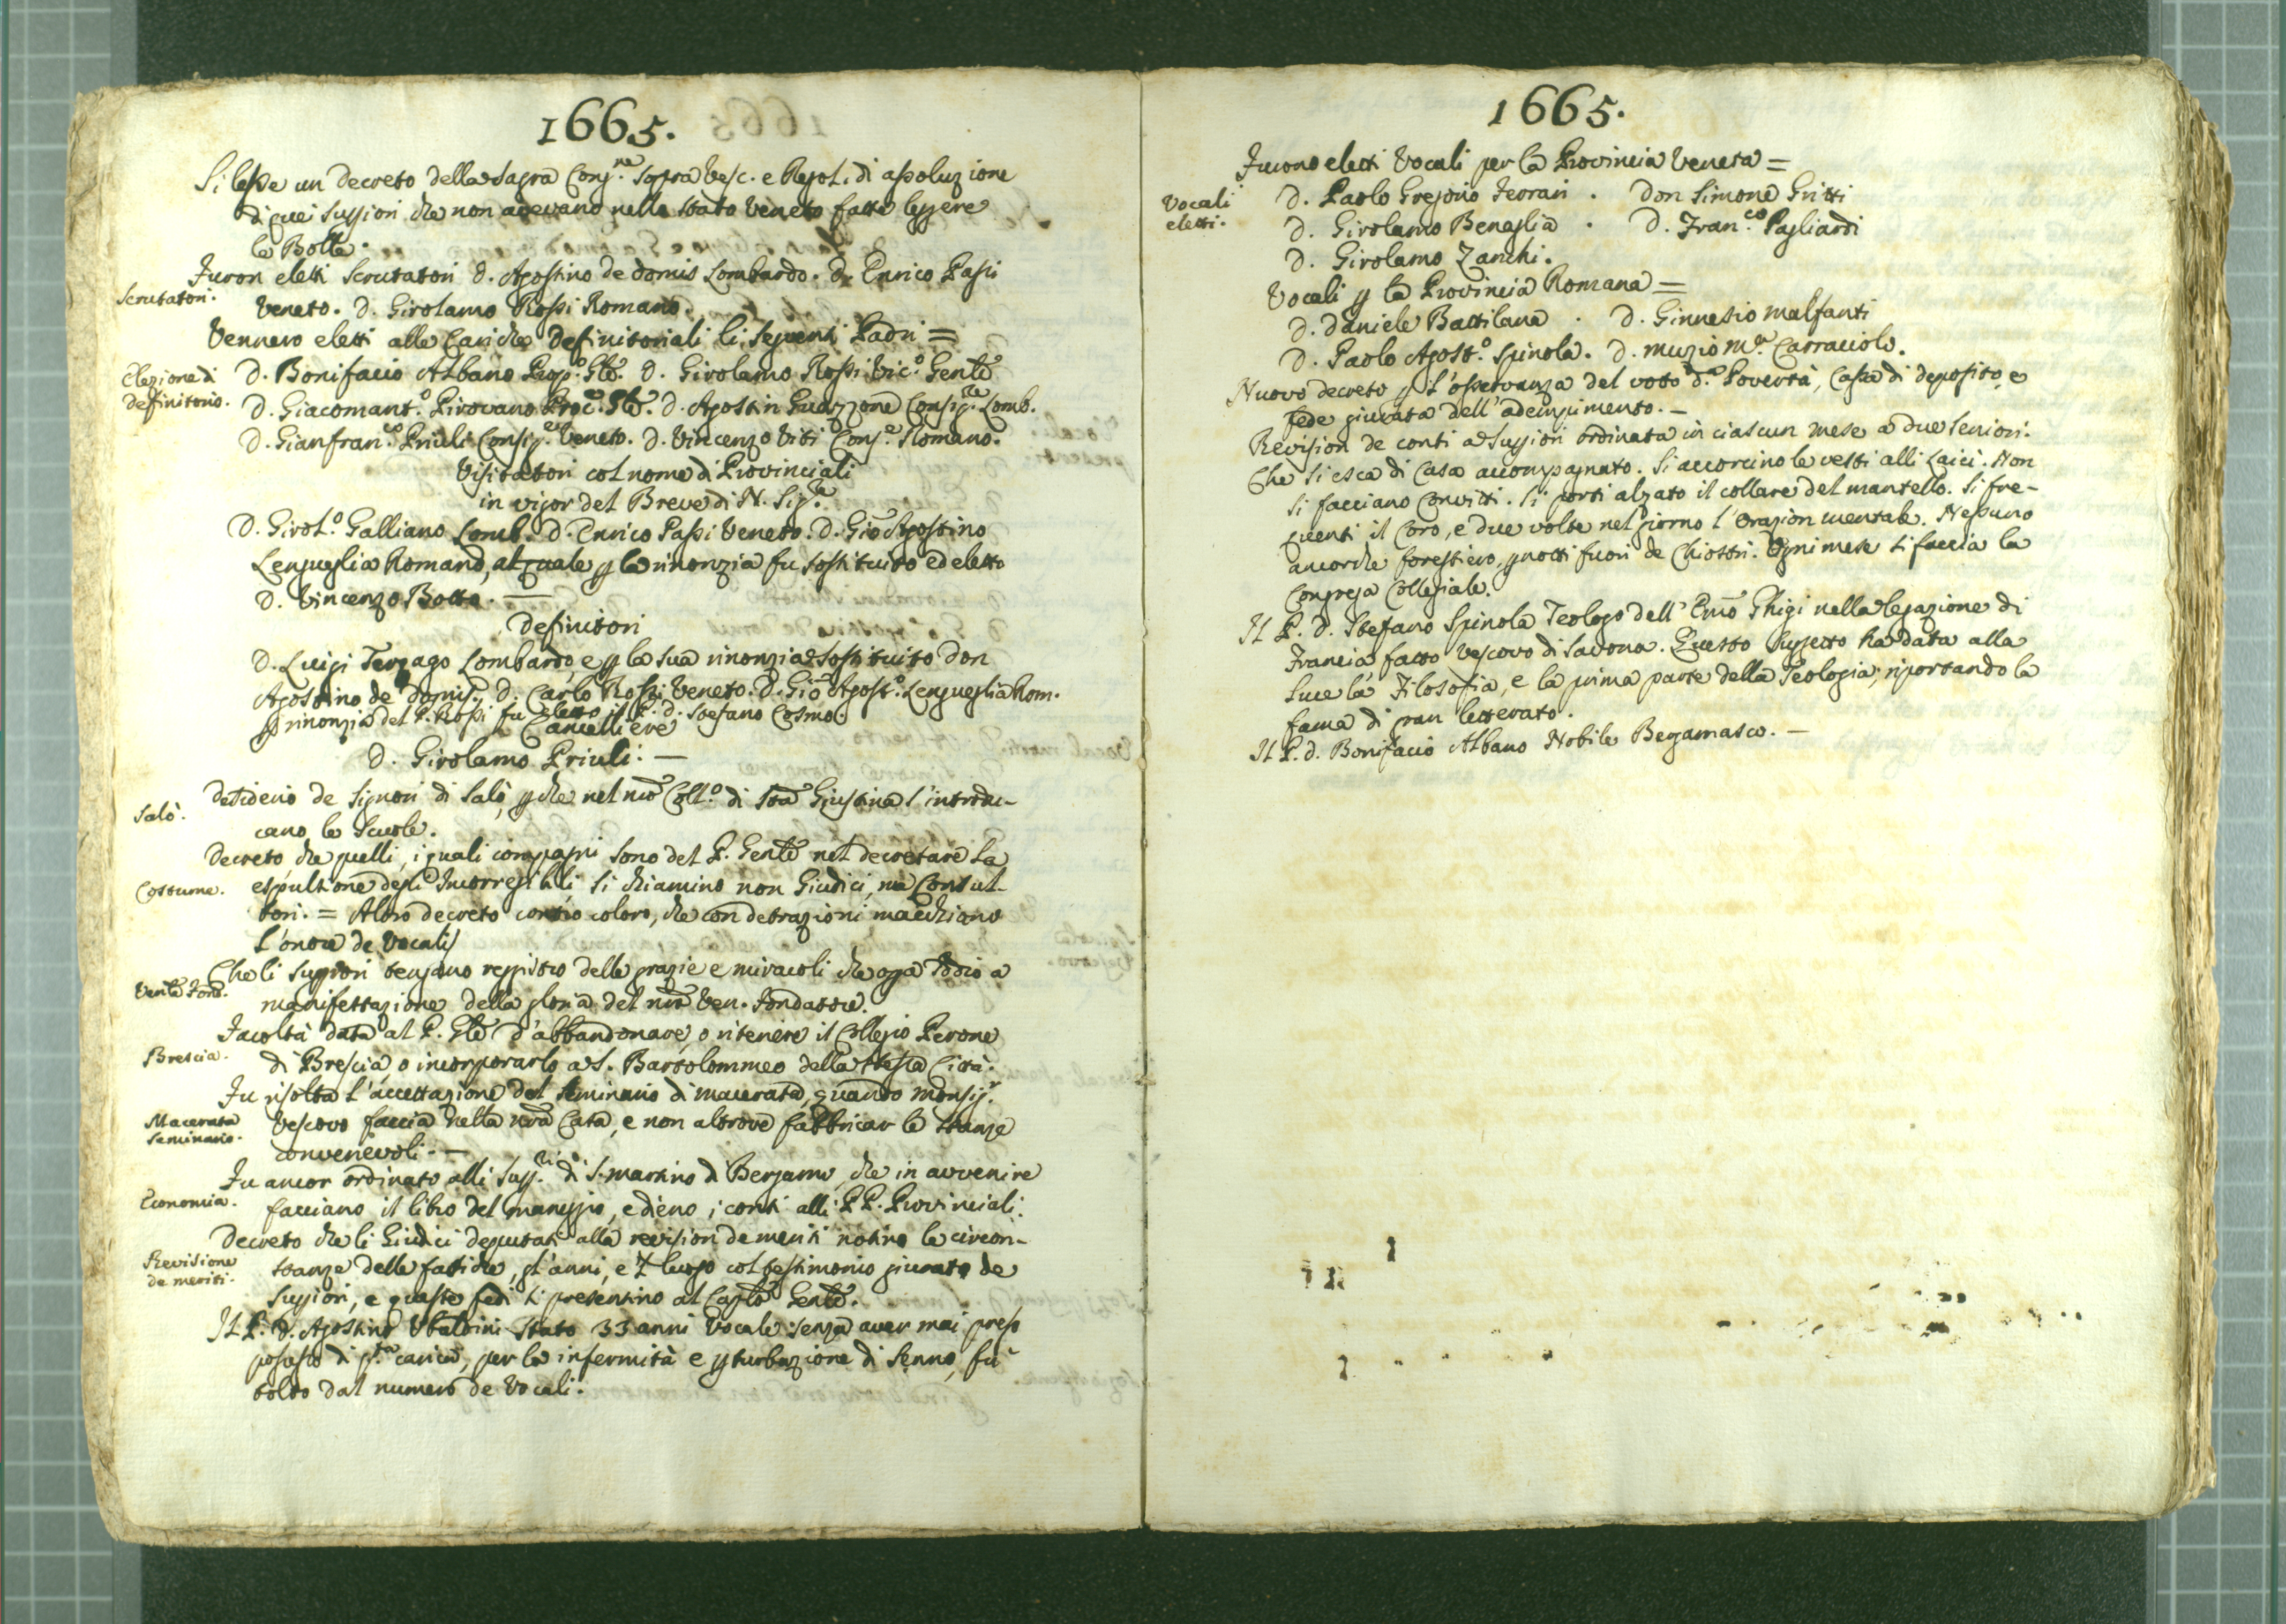 1665.
Si lesse un decreto della Sagra Cong.ne sopra Vesc. e Regol. di assoluzione
di quei Suggiori che non avevano nello stato Veneto fatte leggere
le Bolle.
Furon eletti Scrutatori D. Agostino de Domis Lombardo. D. Enrico Passi
Scrutatori.
Veneto. D. Girolamo Rossi Romano.
Vennero eletti alle Cariche Definitoriali li seguenti Padri =
Elezione di
Definitorio.
D. Bonifacio Albano Prop.o Gle. D. Girolamo Rossi Vic.o Gente
D. Giacomant.o Pirovano Proc.e Gle. D. Agostin Guazzone Consig.re Lomb.
D. Gianfran.co Priuli Consig.re Veneto. D. Vincenzo Viti Cons.e Romano.
Visitatori col nome di Provinciali
in vigor del Breve di N. Sig.re
D. Girol.o Galliano Lomb. D. Enrico Passi Veneto. D. Gio Agostino
Lengueglia Romano, al quale p la rinonzia fu sostituito ed eletto
D. Vincenzo Botta. —
Definitori
D. Luigi Terzago Lombardo, e p la sua rinonzia sostituito don
Agostino de Domis. D. Carlo Rossi Veneto. D. Gio Agost.o Lengueglia Rom.
p rinonzia del P. Rossi fu eletto il P. D. Stefano Cosmo.
Cancelliere
D. Girolamo Priuli. —
Salò.
Desiderio de Signori di Salò, p che nel nro Coll.o di Sta Giustina s'introdu-
cano le Scuole.
Decreto che quelli, i quali compagni sono del P. Gente nel decretare la
Costume.
espulsione degli Incorregibili si chiamino non Giudici, ma Consul-
tori. = Altro decreto contro coloro, che con detrazioni macchiano
l'onore de Vocali
Che li Suggiori tengano reggistro delle grazie e miracoli che opa Iddio a
Vente Fond.
manifestazione della gloria del nro Ven. Fondatore.
Facoltà data al P. Gle d'abbandonare, o ritenere il Collegio Perone
Brescia.
di Brescia, o incorporarlo a S. Bartolommeo della stessa Città.
Fu risolta l'accettazione del Seminario di Macerata, quando Monsig.r
Macerata
Seminario.
Vescovo faccia nella nra Casa, e non altrove fabbricar le stanze
convenevoli. —
Fu ancor ordinato alli Supp.ri di S. Martino di Bergamo, che in avvenire
Economia.
facciano il libro del maneggio, e dieno i conti alli PP. Provinciali.
Decreto che li Giudici deputati alla revision de meriti notino le circon-
Revisione
de meriti.
stanze delle fatiche, gl'anni, e 'l luogo col testimonio giurato de
Suggiori, e queste fedi si presentino al Caplo Gente.
Il P. D. Agostino Ubaldini stato 33 anni Vocale senza aver mai preso
possesso di pta carica, per la infermità e pturbazione di senno, fu
tolto dal numero de Vocali.
1665.
Furono eletti Vocali per la Provincia Veneta =
Vocali
eletti.
D. Paolo Gregorio Ferrari . Don Simone Gritti
D. Girolamo Benaglia . D. Fran.co Pagliardi
D. Girolamo Zanchi.
Vocali p la Provincia Romana =
D. Daniele Battilana . D. Ginnesio Malfanti
D. Paolo Agost.o Spinola. D. Muzio M.a Carracciolo.
Nuovo decreto p l'osservanza del voto d.a Povertà, Cassa di deposito, e
fede giurata dell'adempimento. —
Revision de conti a Suggiori ordinata in ciascun mese a due Seniori.
Che si esca di Casa accompagnato. Si accorcino le vesti alli Laici. Non
si facciano Convitti. Si porti alzato il collare del mantello. Si fre-
quenti il Coro, e due volte nel giorno l'Orazion mentale. Nessuno
ancorche forestiero, pnotti fuori de Chiostri. Ogni mese si faccia la
Congrega Collegiale.
Il P. D. Stefano Spinola Teologo dell' Emo Ghigi nella legazione di
Francia fatto Vescovo di Savona. Questo Suggetto ha data alla
luce la Filosofia, e la prima parte della Teologia, riportando la
fama di gran letterato.
Il P. D. Bonifacio Albano Nobile Bergamasco. —